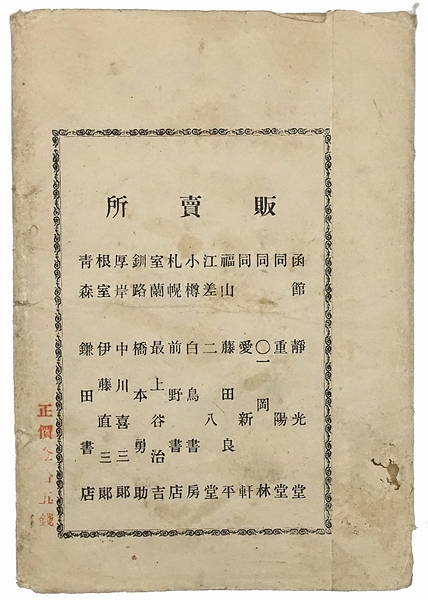 販賣所
函館 靜光堂
同 重陽堂
同 〇一岡林
同 愛新軒
福山 藤田良平
江差 二八堂
小樽 白鳥書房
札幌 前野書店
室蘭 最上谷治吉
釧路 橋本勇助
厚岸 中川喜三郎
根室 伊藤直三郎
青森 鎌田書店
正價金
錢